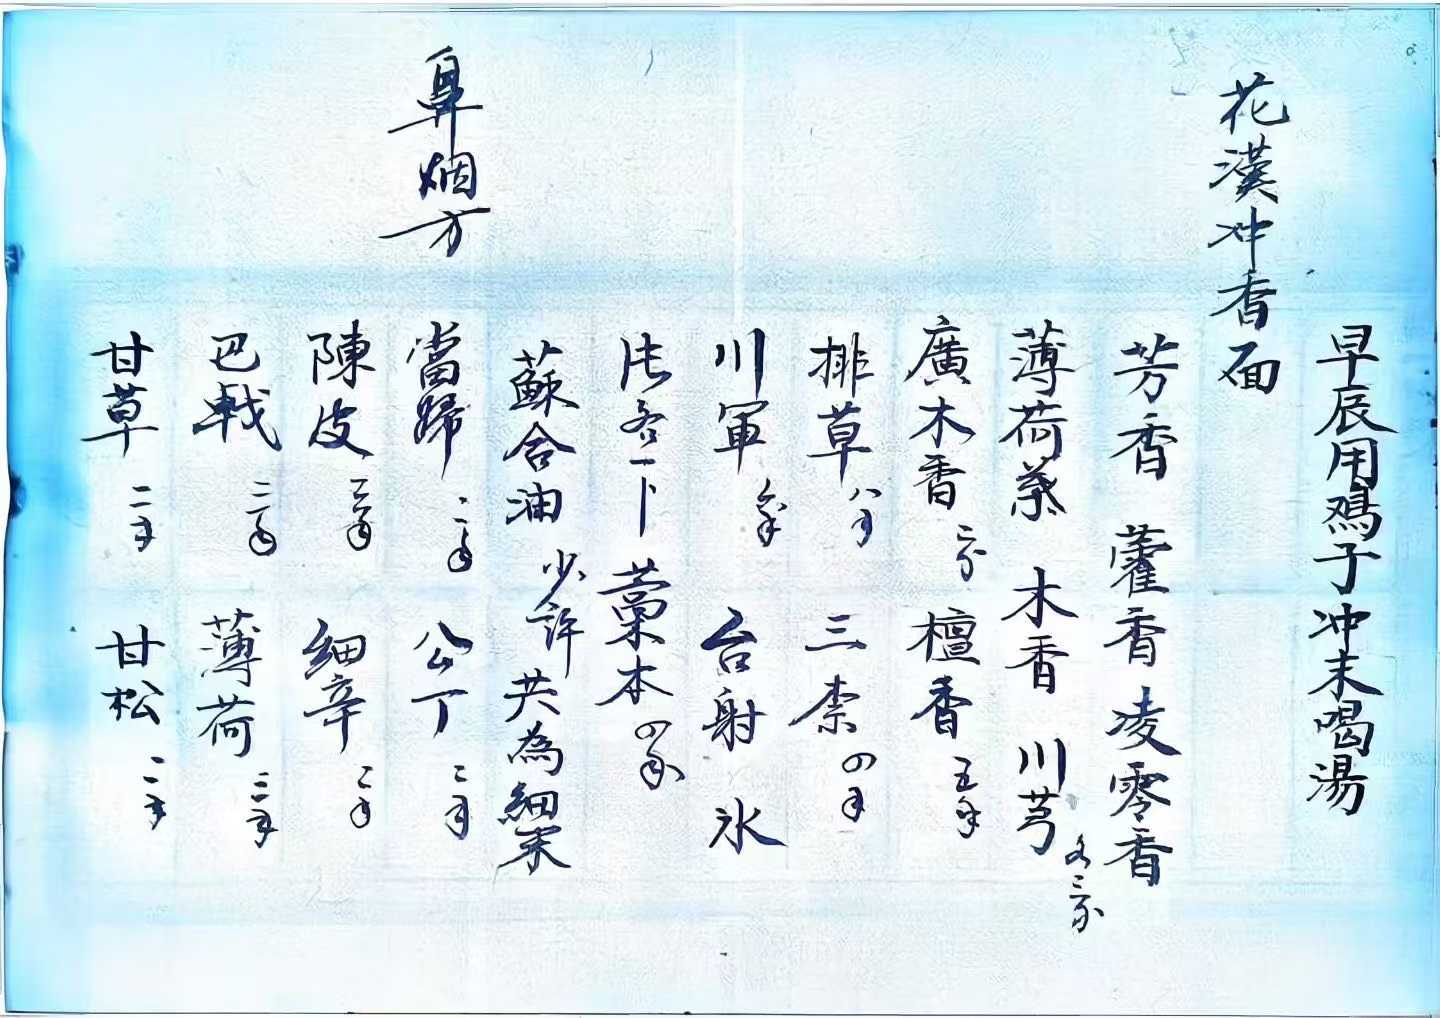 早辰用鸡子冲末喝湯
花漢冲香面
芳香 藿香 凌零香
薄荷葉 木香 川芎 各二分
廣木香 二分 檀香 五个
排草 八个 三柰 四个
川軍 台射 氷
片各一卜 藁本 四个
蘇合油 少許 共為細末
鼻烟方
當歸 二个 公丁 二个
陳皮 細辛 二个
巴戟 薄荷 二个
甘草 二个 甘松 二个